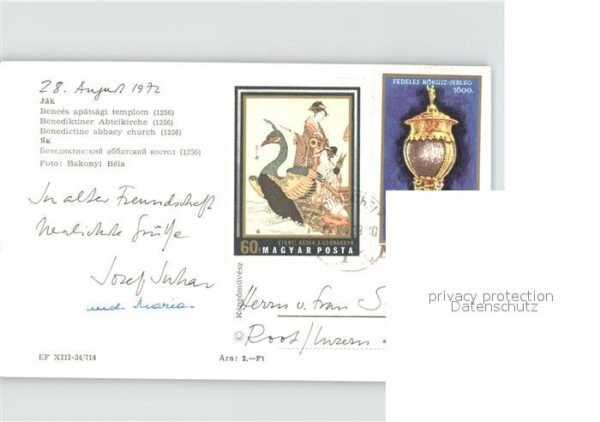 28. August 1972
Ják
Bencés apátsági templom (1256)
Benediktiner Abteikirche (1256)
Benedictine abbacy church (1256)
Як
Бенедиктинский аббатский костел (1256)
Foto: Bakonyi Béla
In alter Freundschaft
Herzlichste Grüße
Josef
und Maria
EF XIII-34/714
Ára: 2.—Ft
Képzőművész
©
60f
MAGYAR POSTA
FEDELES KÓKUSZ-SERLEG
1600.
Herrn u. Frau S
Root/Luzern
privacy protection
Datenschutz